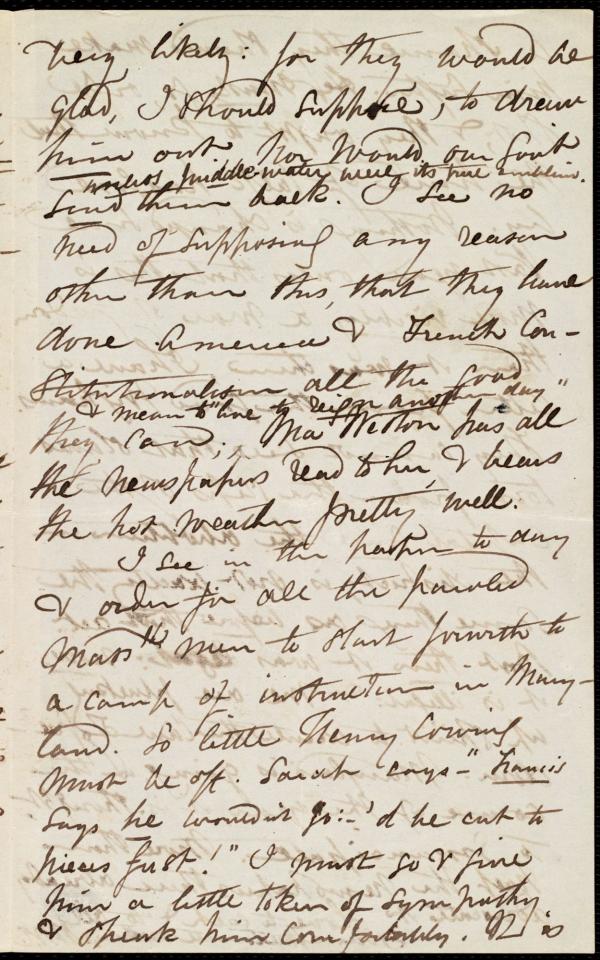 very likely: for they would be
glad, I should suppose, to draw
him out nor would our Govt
unless puddle-water were its true emblem.
send them back. I see no
need of supposing any reason
other than this, that they have
done America & French Con-
stitutionalism all the good
& mean to "live to reign another day"
they can; Ma Weston has all
the newspapers read to her, & bears
the hot weather pretty well.
I see in the paper to day
& order for all the paroled
Massts men to start forwith to
a camp of instruction in Mary-
land. So little Henry Cowing
must be off. Sarah says - "Francis
says he wouldn't go: - 'd be cut to
pieces fust!" I must go & give
him a little token of sympathy
& speak him comfortably. It is